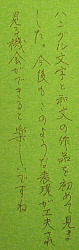 ハングル文字と和文の作品を初めて見ま
した。今後もこのような表現が工夫され
見る機会ができると楽しいですね